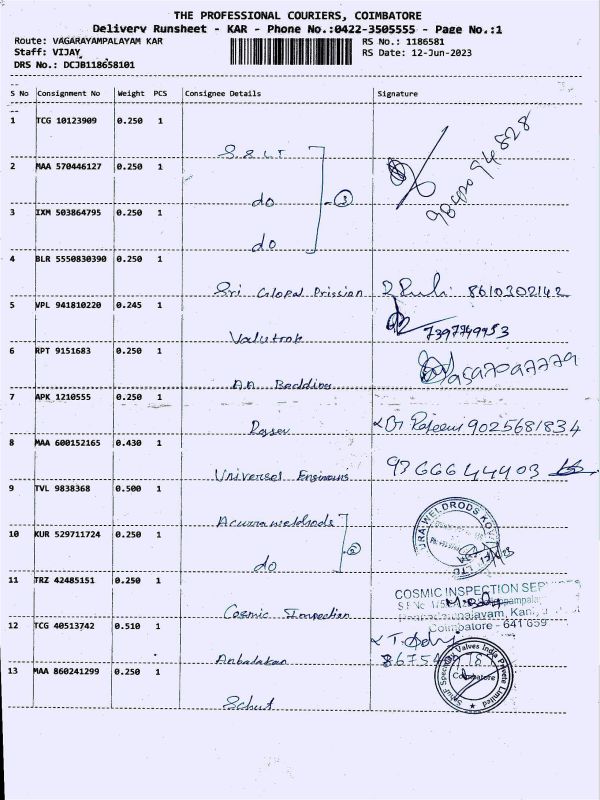 THE PROFESSIONAL COURIERS, COIMBATORE
Delivery Runsheet - KAR - Phone No.:0422-3505555 - Page No.:1
Route: VAGARAYAMPALAYAM KAR RS No.: 1186581
Staff: VIJAY RS Date: 12-Jun-2023
DRS No.: DCJB118658101
S No Consignment No Weight PCS Consignee Details Signature
1 TCG 10123909 0.250 1
S.&L.T 98420 94828
2 MAA 570446127 0.250 1
do 3
3 IXM 503864795 0.250 1
do
4 BLR 5550830390 0.250 1
Sri Gopal Prission 8610302142
5 VPL 941810220 0.245 1
Valutrop 7397749953
6 RPT 9151683 0.250 1
A.A. Bedding
7 APK 1210555 0.250 1
9025681834
8 MAA 600152165 0.430 1
Universel Engineers 9766644403
9 TVL 9838368 0.500 1
Acurraweldrods
JRA WELDRODS KO
10 KUR 529711724 0.250 1
do 2
11 TRZ 42485151 0.250 1
Cosmic Inspection
COSMIC INSPECTION SER
Coimbatore - 641 659
12 TCG 40513742 0.510 1
Anbalakan
13 MAA 860241299 0.250 1
Schuf
Valves India Private Limited
Coimbatore